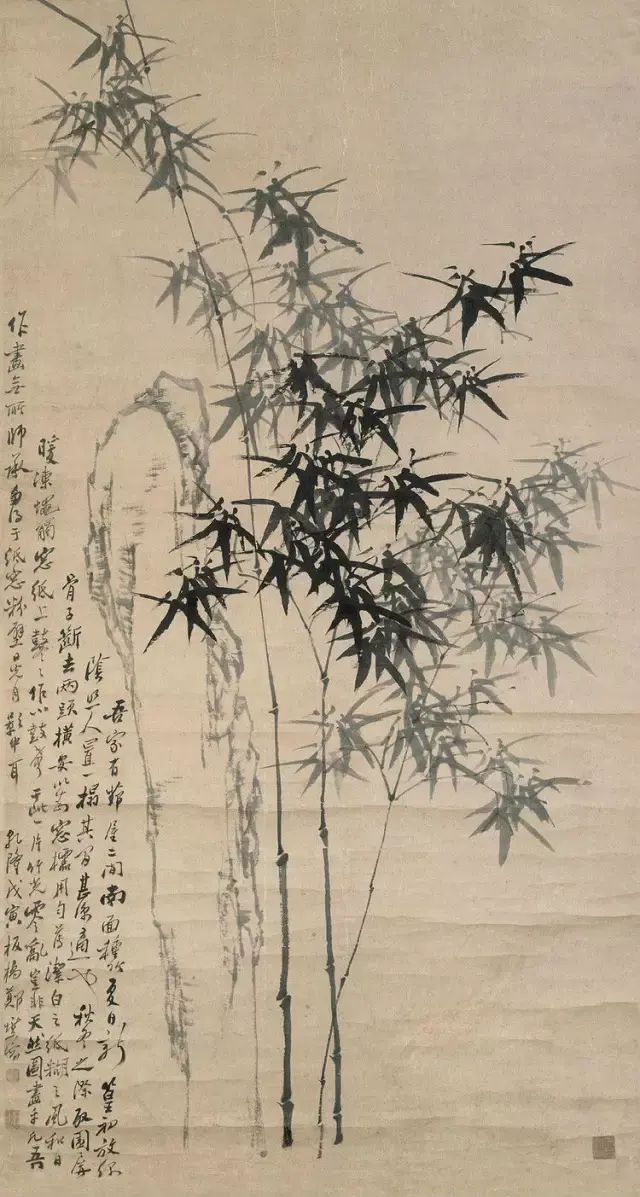 吾家有茆屋二間南面種竹夏日新篁初放綠
陰照人置一榻其間甚涼適也秋冬之際取圍屏
骨子斷去兩頭橫安以爲窓櫺用勻薄潔白之紙糊之風和日
暖凍蠅觸窓紙上鼕々作小鼓聲于此一片竹光零亂豈非天然圖畫乎凡吾
作畫無所師承多得于紙窓粉壁日光月影中耳乾隆戊寅板橋鄭燮